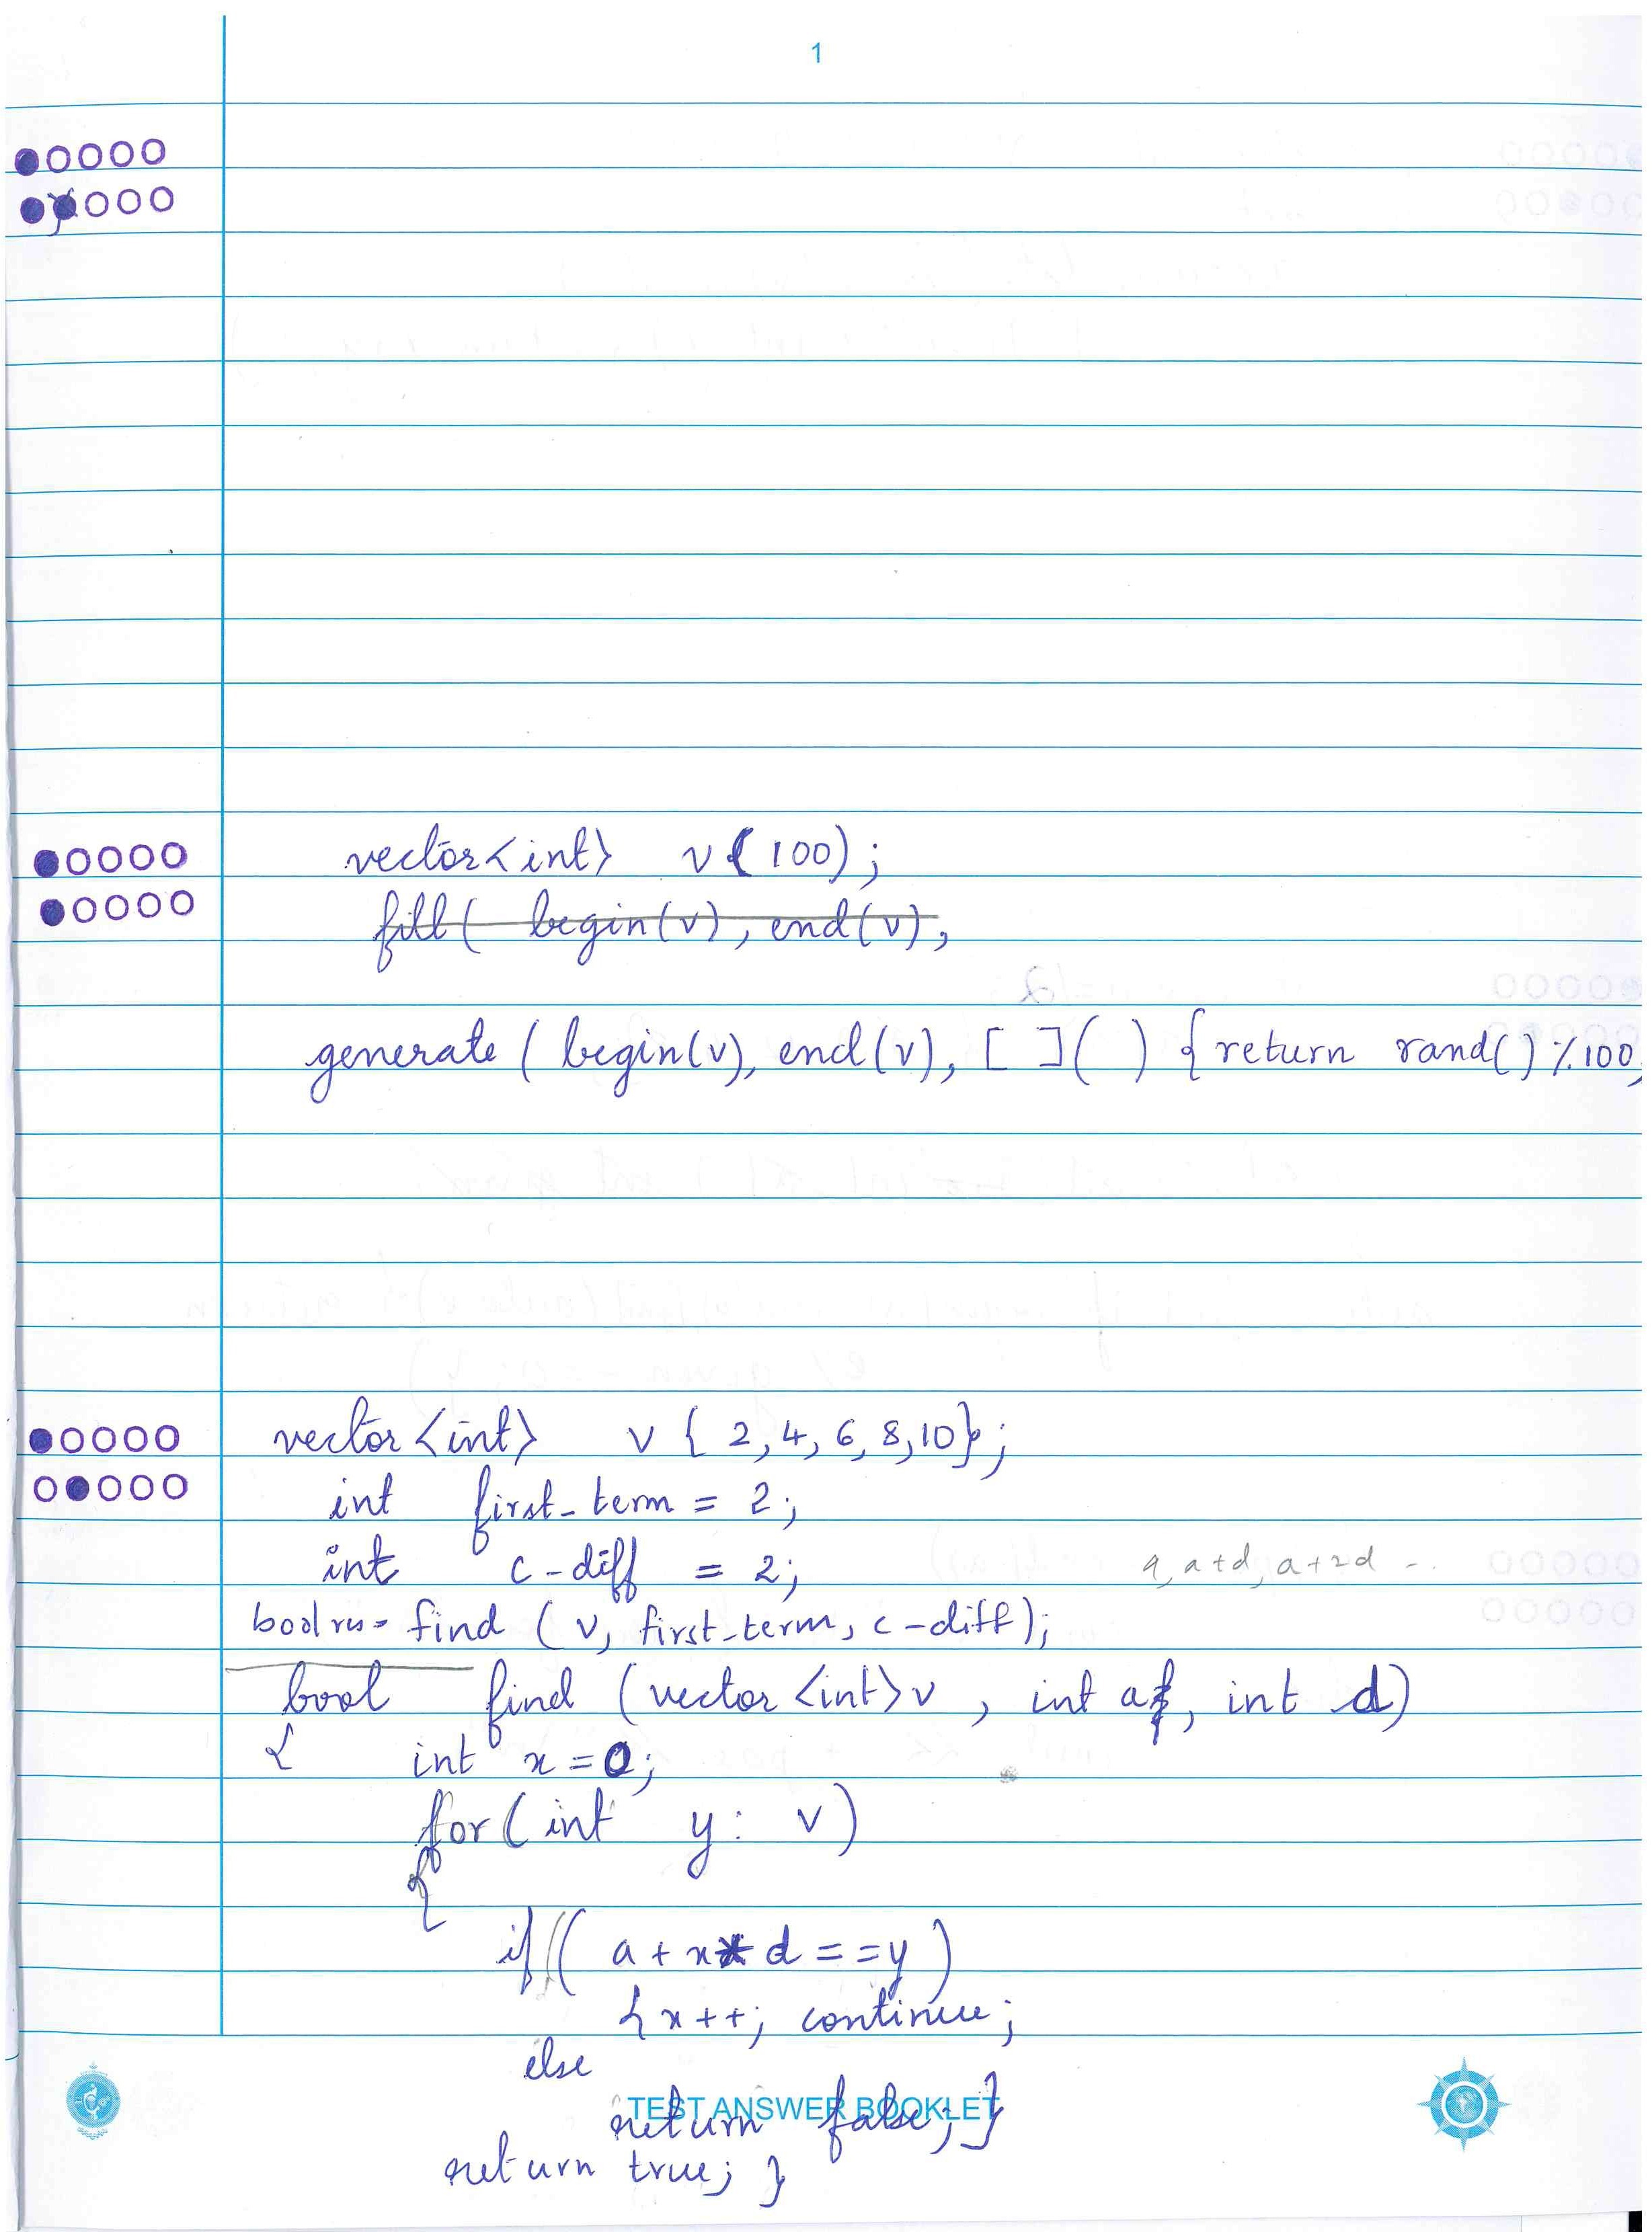 1
vector<int> v(100);
fill( begin(v), end(v),
generate ( begin(v), end(v), [ ]( ) { return rand() %100;
vector<int> v { 2, 4, 6, 8, 10};
int first_term = 2;
int c-diff = 2;
a, a+d, a+2d -..
bool res = find (v, first_term, c-diff);
bool find (vector<int>v , int a, int d)
{ int x = 0;
for (int y : v)
{
if ( a + x * d == y )
{ x++; continue;
else
TEST ANSWER BOOKLET
return false; }
return true; }